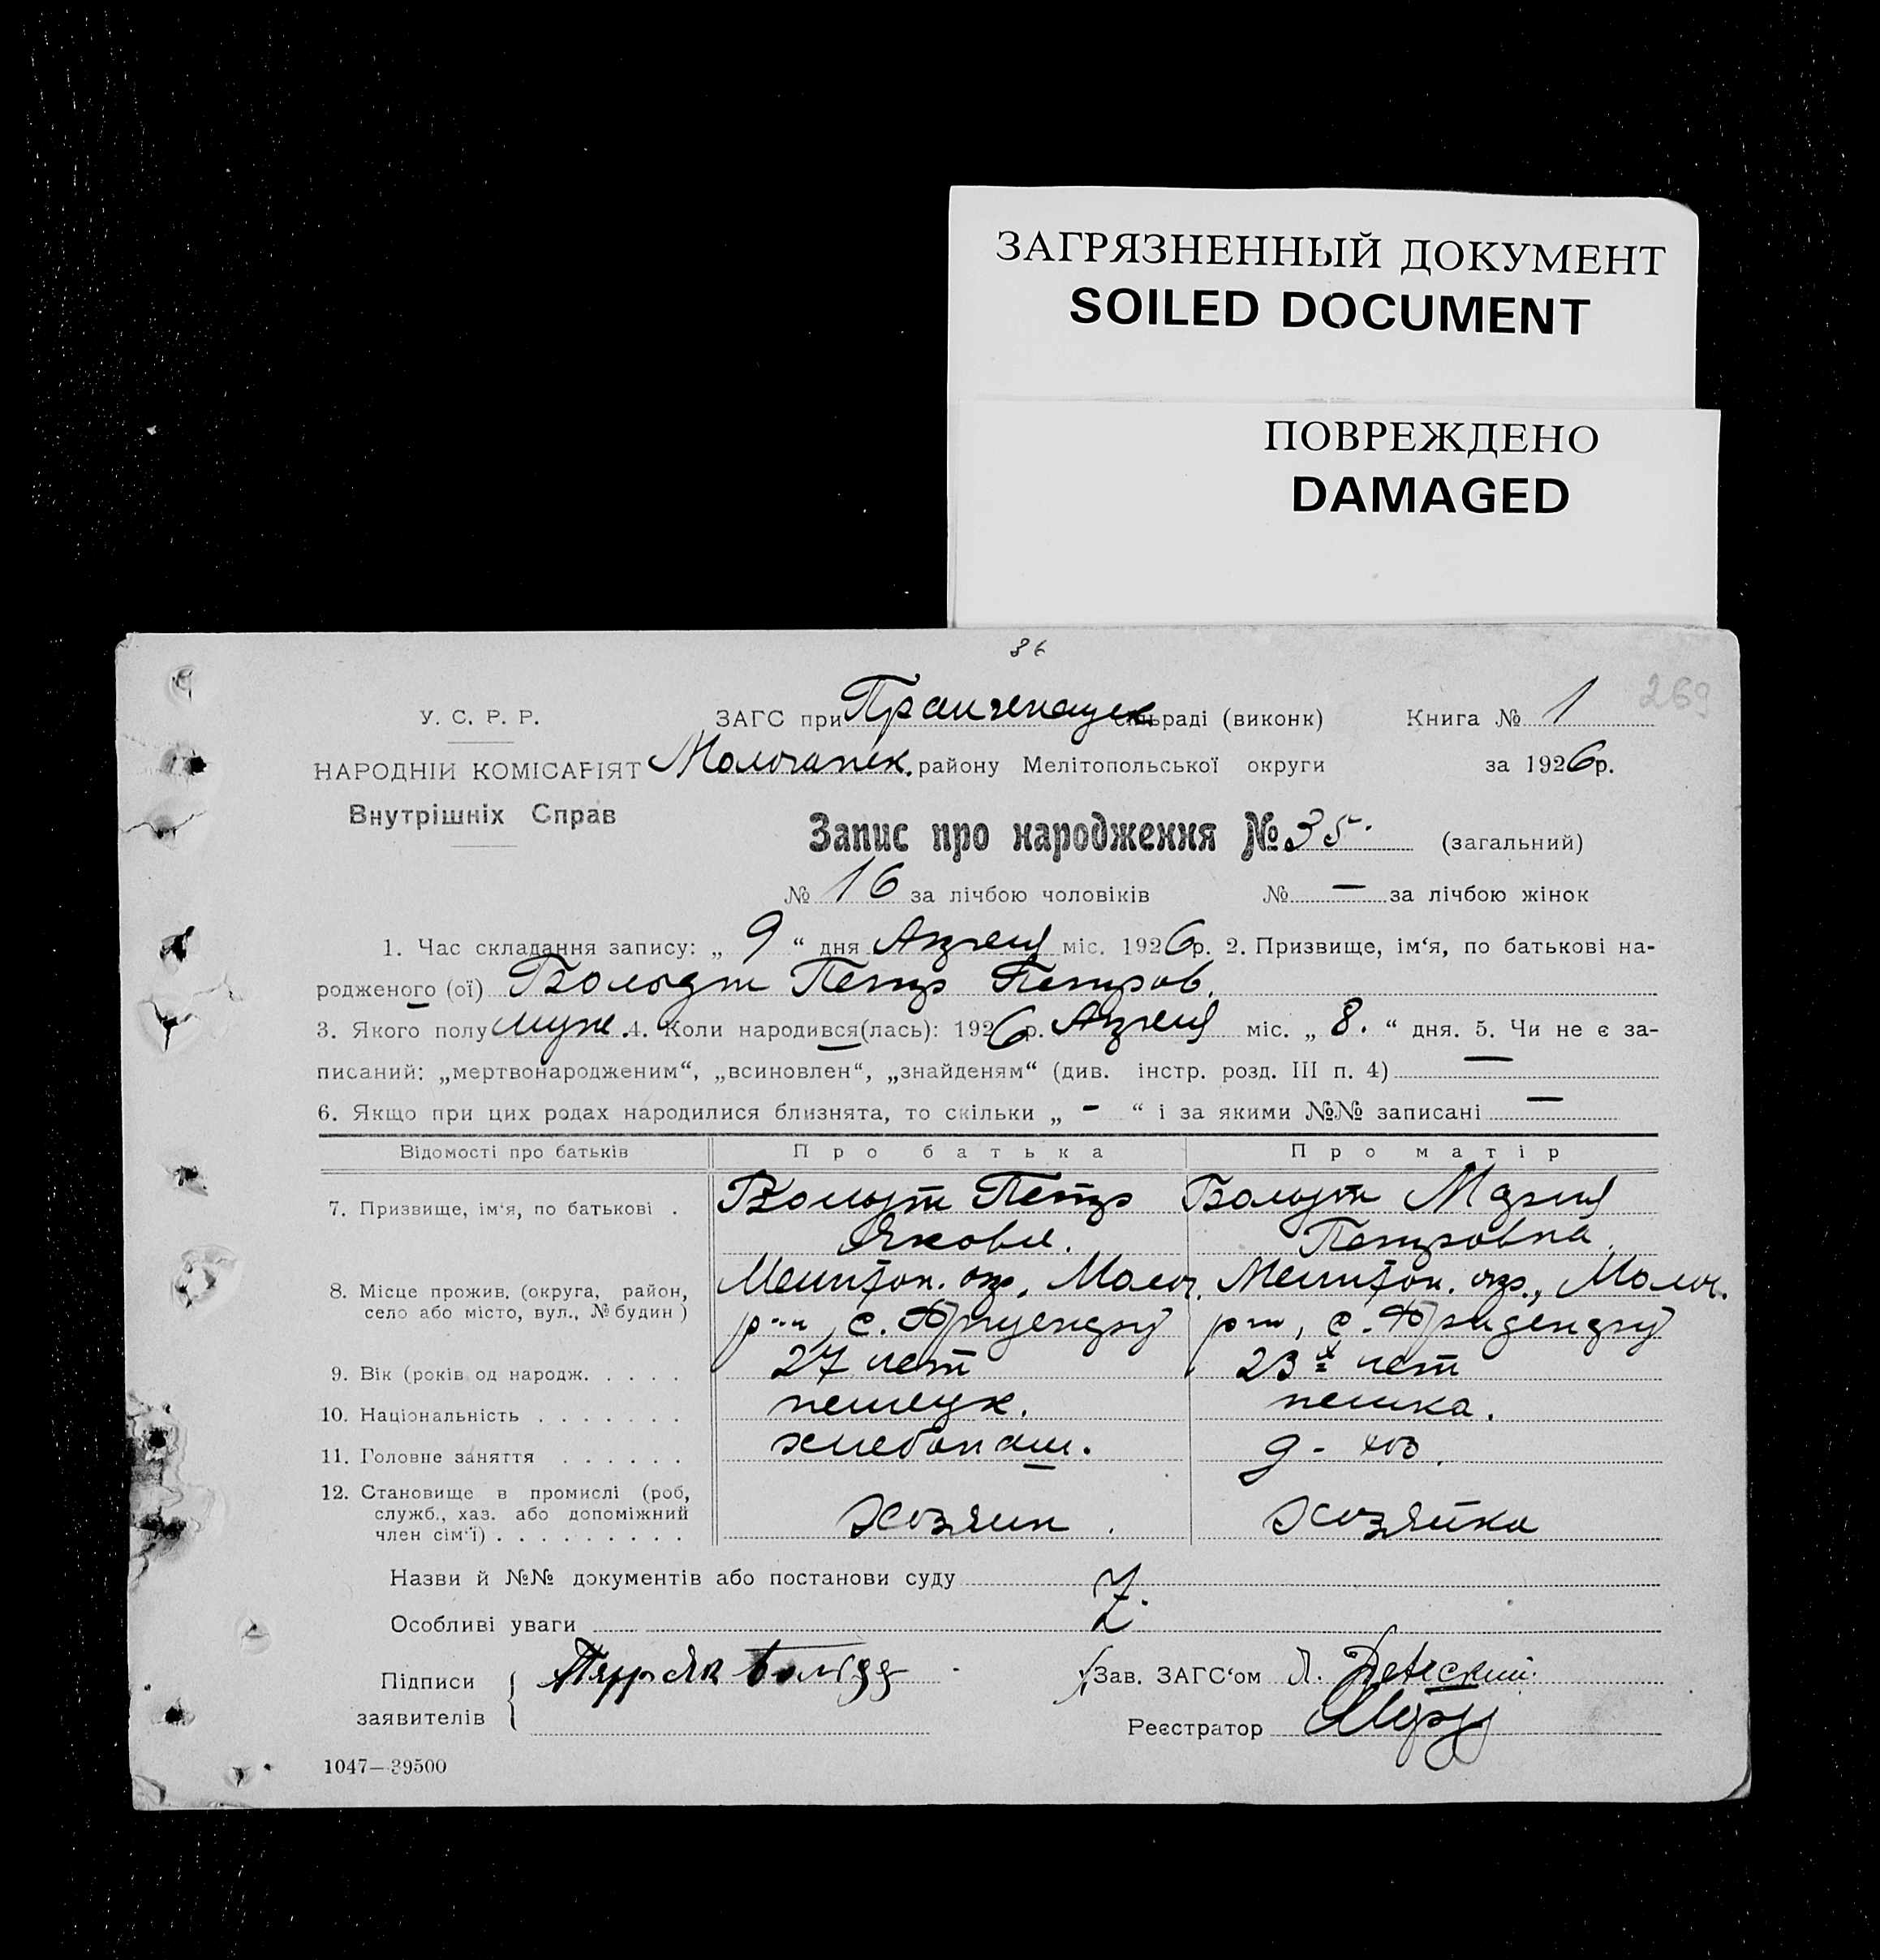 ЗАГРЯЗНЕННЫЙ ДОКУМЕНТ
SOILED DOCUMENT
ПОВРЕЖДЕНО
DAMAGED
86
269
У. С. Р. Р.
ЗАГС при сільраді (виконк) Книга № 1
НАРОДНІЙ КОМІСАРІЯТ Молочанск. району Мелітопольської округи за 1926р.
Внутрішніх Справ
Запис про народження № 35. (загальний)
№ 16 за лічбою чоловіків № — за лічбою жінок
1. Час складання запису: „ 9 “ дня Апреля міс. 1926р. 2. Призвище, ім‘я, по батькові на-
родженого (ої) Больдт Петр Петров.
3. Якого полу муж. 4. Коли народився(лась): 1926р. Апреля міс. „ 8. “ дня. 5. Чи не є за-
писаний: „мертвонародженим“, „всиновлен“, „знайденям“ (див. інстр. розд. III п. 4) —
6. Якщо при цих родах народилися близнята, то скільки „ - “ і за якими №№ записані —
Відомості про батьків Про батька Про матір
7. Призвище, ім‘я, по батькові . Больдт Петр Больдт Мария
Яковл. Петровна.
8. Місце прожив. (округа, район, Мелитоп. окр., Молоч. Мелитоп. окр., Молоч.
село або місто, вул., № будин ) р-н, с. р-н, с.
9. Вік (років од народж. . . . . 27 лет 23 х лет
10. Національність . . . . . . . немецк. немка.
11. Головне заняття . . . . . . хлебопаш. д - хоз.
12. Становище в промислі (роб,
служб., хаз. або допоміжний хозяин . хозяйка
член сім‘ї) . . . . . . . . .
Назви й №№ документів або постанови суду
Особливі уваги
Підписи Зав. ЗАГС‘ом
заявителів Реєстратор
1047—39500